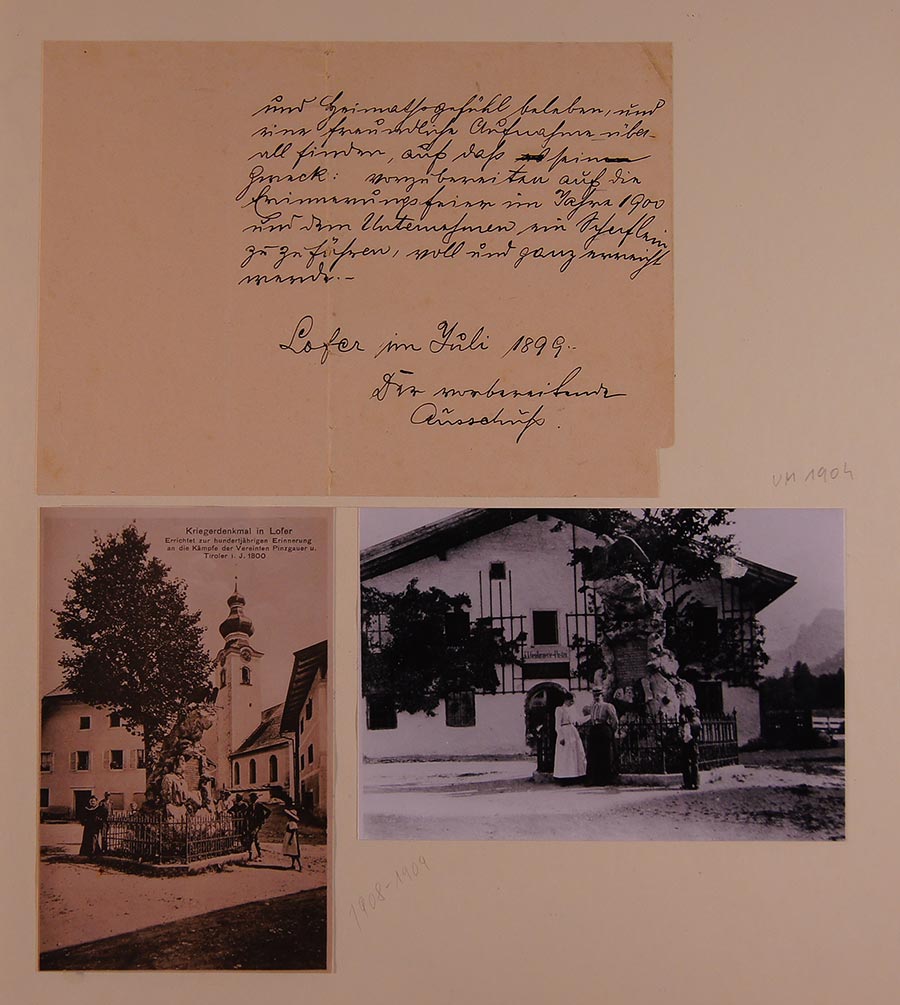 und Heimathsgefühl beleben, und
eine freundliche Aufnahme über-
all finden, auf daß sein
Zweck: vorzubereiten auf die
Erinnerungsfeier im Jahre 1900
und dem Unternehmen ein Scherflein
zu zuführen, voll und ganz erreicht
werde.-
Lofer im Juli 1899.-
Der vorbereitende
Ausschuß.
um 1904
Kriegerdenkmal in Lofer
Errichtet zur hundertjährigen Erinnerung
an die Kämpfe der Vereinten Pinzgauer u.
Tiroler i. J. 1800
1908-1909